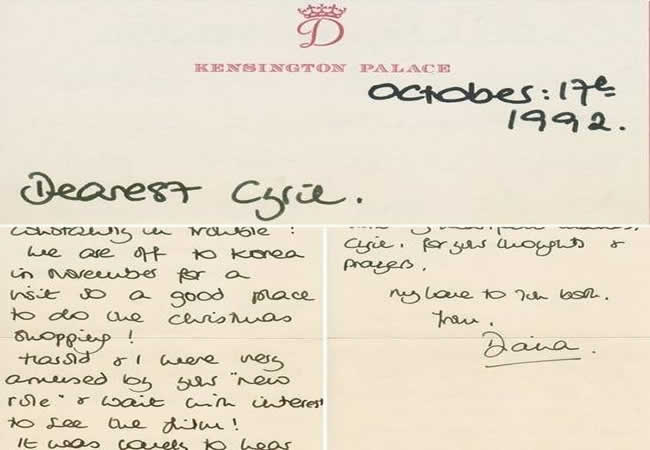 D
KENSINGTON PALACE
October: 17th
1992.
Dearest Cyril.
constantly in trouble!
We are off to Korea
in November for a
visit so a good place
to do the Christmas
shopping!
Harold & I were very
amused by your "new
role" & wait with interest
to see the film!
It was lovely to hear
Cyril, for your thoughts &
prayers.
My love to you both.
from,
Diana.